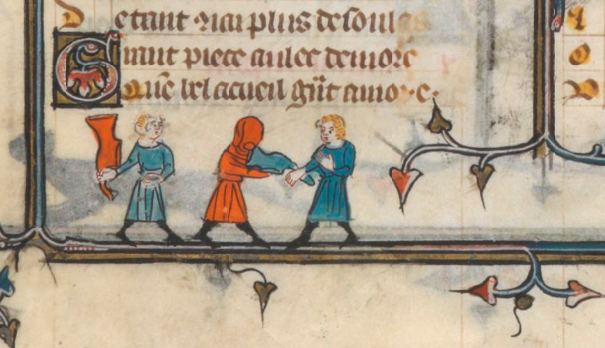 D etant mai plus de soulas
Grant piece ai ilec demore
Quē bel acueil gñt amor e.